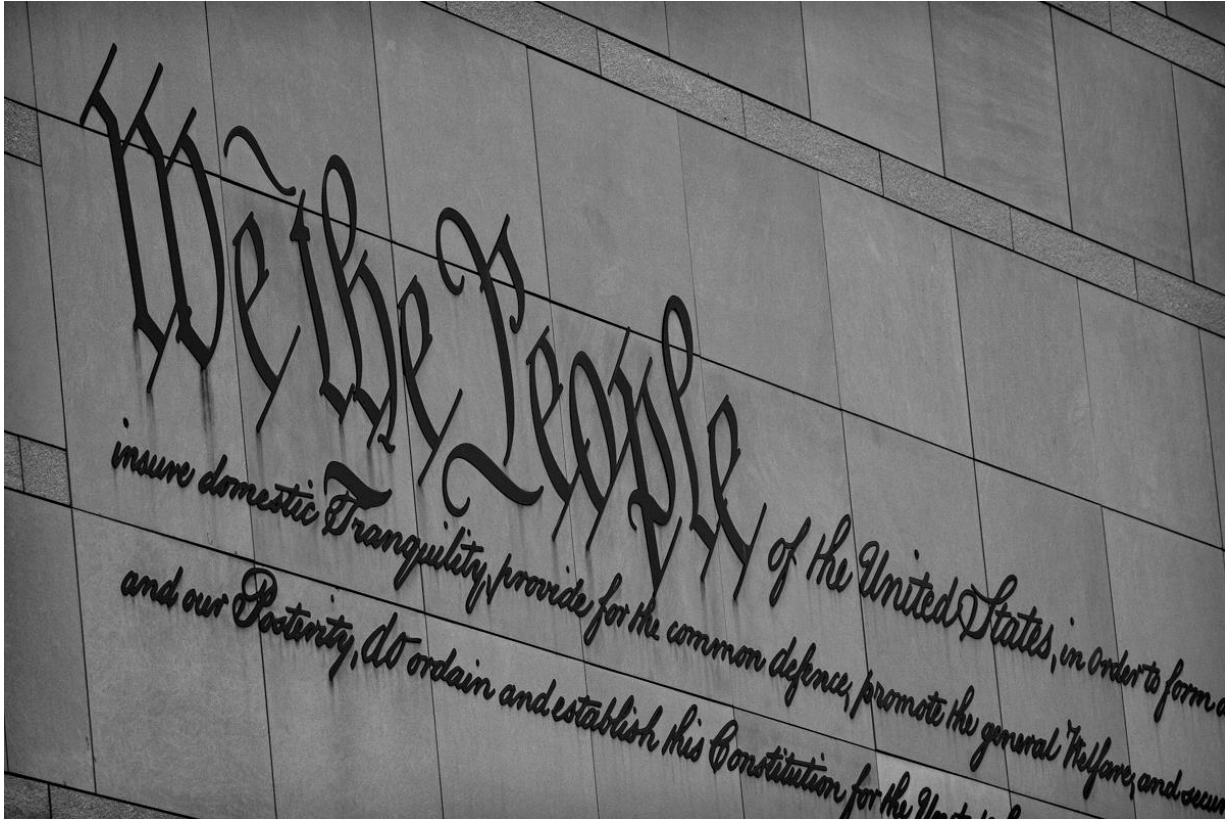 We the People of the United States, in order to form a
insure domestic Tranquility, provide for the common defence, promote the general Welfare, and secu
and our Posterity, do ordain and establish this Constitution for the